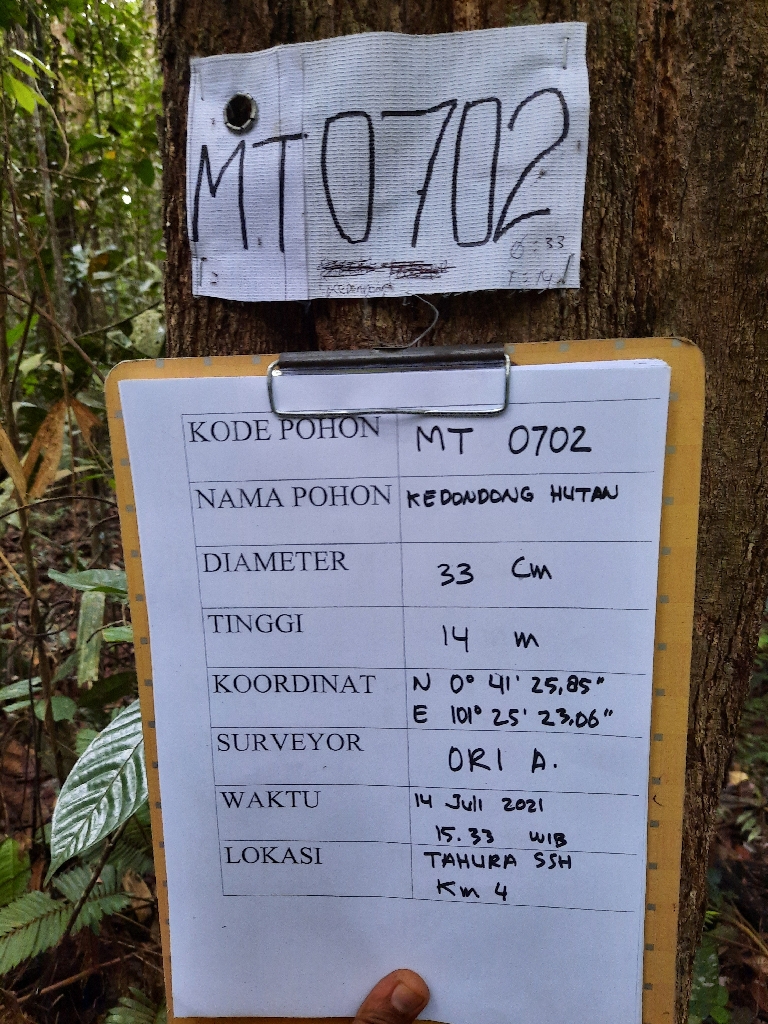 MT0702
Ø: 33
T: 14
KODE POHON MT 0702
NAMA POHON KEDONDONG HUTAN
DIAMETER 33 Cm
TINGGI 14 m
KOORDINAT N 0° 41' 25,85"
E 101° 25' 23,06"
SURVEYOR ORI A.
WAKTU 14 Juli 2021
15.33 WIB
LOKASI TAHURA SSH
Km 4